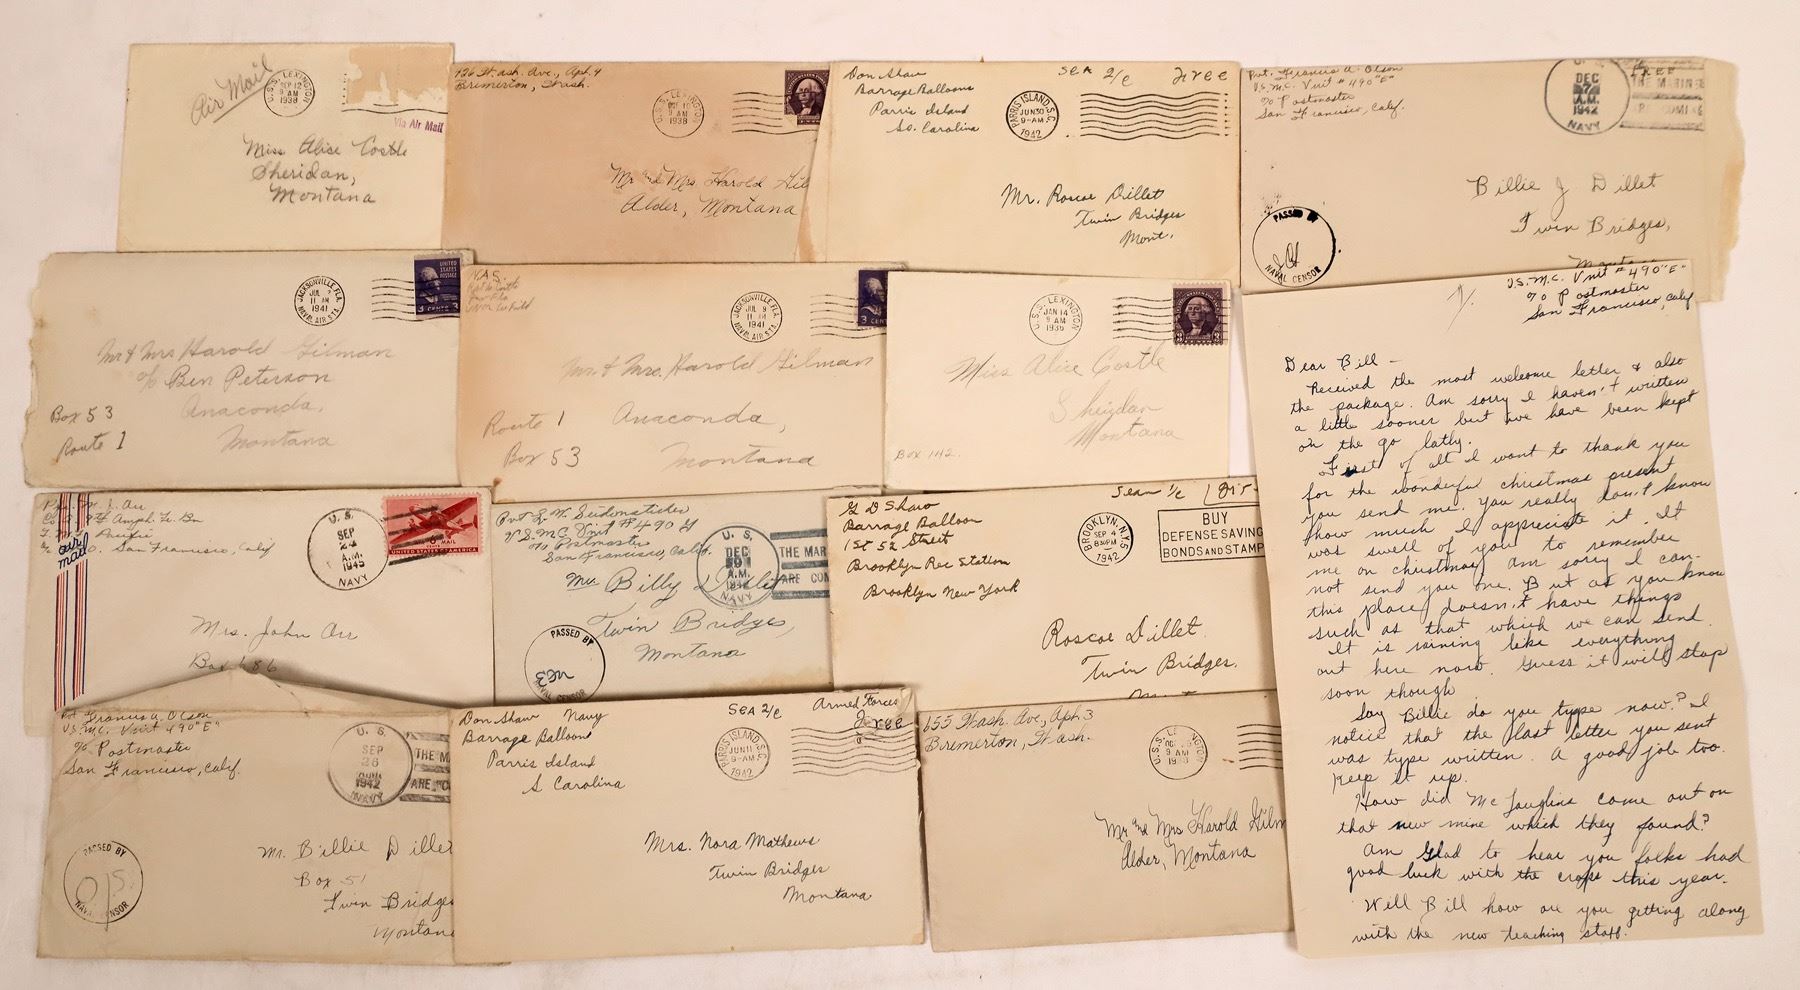 Air Mail
U.S.S. LEXINGTON
SEP 12
9 AM
1938
Via Air Mail
Miss Alice Costle
Sheridan,
Montana
Wash. Ave., Apt. 4
Bremerton, Wash.
9 AM
1938
Mr and Mrs Harold Gil
Alder, Montana
Don Shaw
Sea 2/c
Free
Barrage Balloons
Parris Island
So. Carolina
PARRIS ISLAND, S.C.
JUN 30
9-AM
1942
Mr. Roscoe Dillet
Twin Bridges
Mont.
Pvt. Francis A. Olson
U.S.M.C. Unit # 490 "E"
℅ Postmaster
San Francisco, Calif.
FREE
DEC
7
A.M.
1942
NAVY
THE MARINE
PASSED BY
NAVAL CENSOR
Billie J Dillet
Twin Bridges,
JACKSONVILLE, FLA.
11 AM
1941
NAVAL AIR STA.
UNITED
STATES
POSTAGE
3 CENTS 3
Mr & Mrs Harold Gilman
℅ Ben Peterson
Box 53
Anaconda,
Route 1
Montana
N.A.S.
JACKSONVILLE, FLA.
JUL 9
11 AM
1941
NAVAL AIR STA.
3 CENTS
Mr. & Mrs. Harold Gilman
Route 1
Anaconda,
Box 53
Montana
U.S.S. LEXINGTON
JAN 14
9 AM
1936
Miss Alice Costle
Sheridan
Montana
Box 1142.
M. L. Arr
Amph. Tr. Bn
Pacific
San Francisco, Calif
air
mail
U.S.
SEP
A.M.
1945
NAVY
UNITED STATES OF AMERICA
Mrs. John Arr
Box 686
U.S.M.C. Unit # 490
℅ Postmaster
San Francisco, Calif.
U.S.
DEC
A.M.
NAVY
THE MAR
ARE COM
Mr Billy
Twin Bridges,
Montana
PASSED BY
NAVAL CENSOR
G D Shaw
Sean 1/c
Barrage Balloon
1st 52 Street
Brooklyn Rec Station
Brooklyn New York
BROOKLYN, N.Y.
SEP 4
830PM
1942
BUY
DEFENSE SAVING
BONDS AND STAMP
Roscoe Dillet.
Twin Bridges.
Pvt Francis A. Olson
U.S.M.C. Unit 490 "E"
℅ Postmaster
San Francisco, Calif.
U.S.
SEP
26
1942
NAVY
THE M
ARE C
PASSED BY
NAVAL CENSOR
Mr. Billie Dillet
Box 51
Twin Bridges
Montana
Don Shaw Navy
Sea 2/c
Armed Forces
Free
Barrage Balloons
Parris Island
S Carolina
PARRIS ISLAND, S.C.
JUN 11
9-AM
1942
Mrs. Nora Mathews
Twin Bridges
Montana
155 Wash. Ave, Apt. 3
Bremerton, Wash.
U.S.S. LEXINGTON
9 AM
Mr and Mrs Harold Gilm
Alder, Montana
U.S.M.C. Unit # 490 "E"
℅ Postmaster
San Francisco, Calif
Dear Bill —
Received the most welcome letter & also
the package. Am sorry I haven't written
a little sooner but we have been kept
on the go latly.
First of all I want to thank you
for the wonderful christmas present
you send me. You really don't know
how much I appreciate it. It
was swell of you to remember
me on christmas, am sorry I can-
not send you one. But as you know
this place doesn't have things
such as that which we can send.
It is raining like everything
out here now. Guess it will stop
soon though
Say Billie do you type now? I
notice that the last letter you sent
was type written. A good job too.
Keep it up.
How did McLauglins come out on
that new mine which they found?
Am glad to hear you folks had
good luck with the crops this year.
Well Bill how are you getting along
with the new teaching staff.